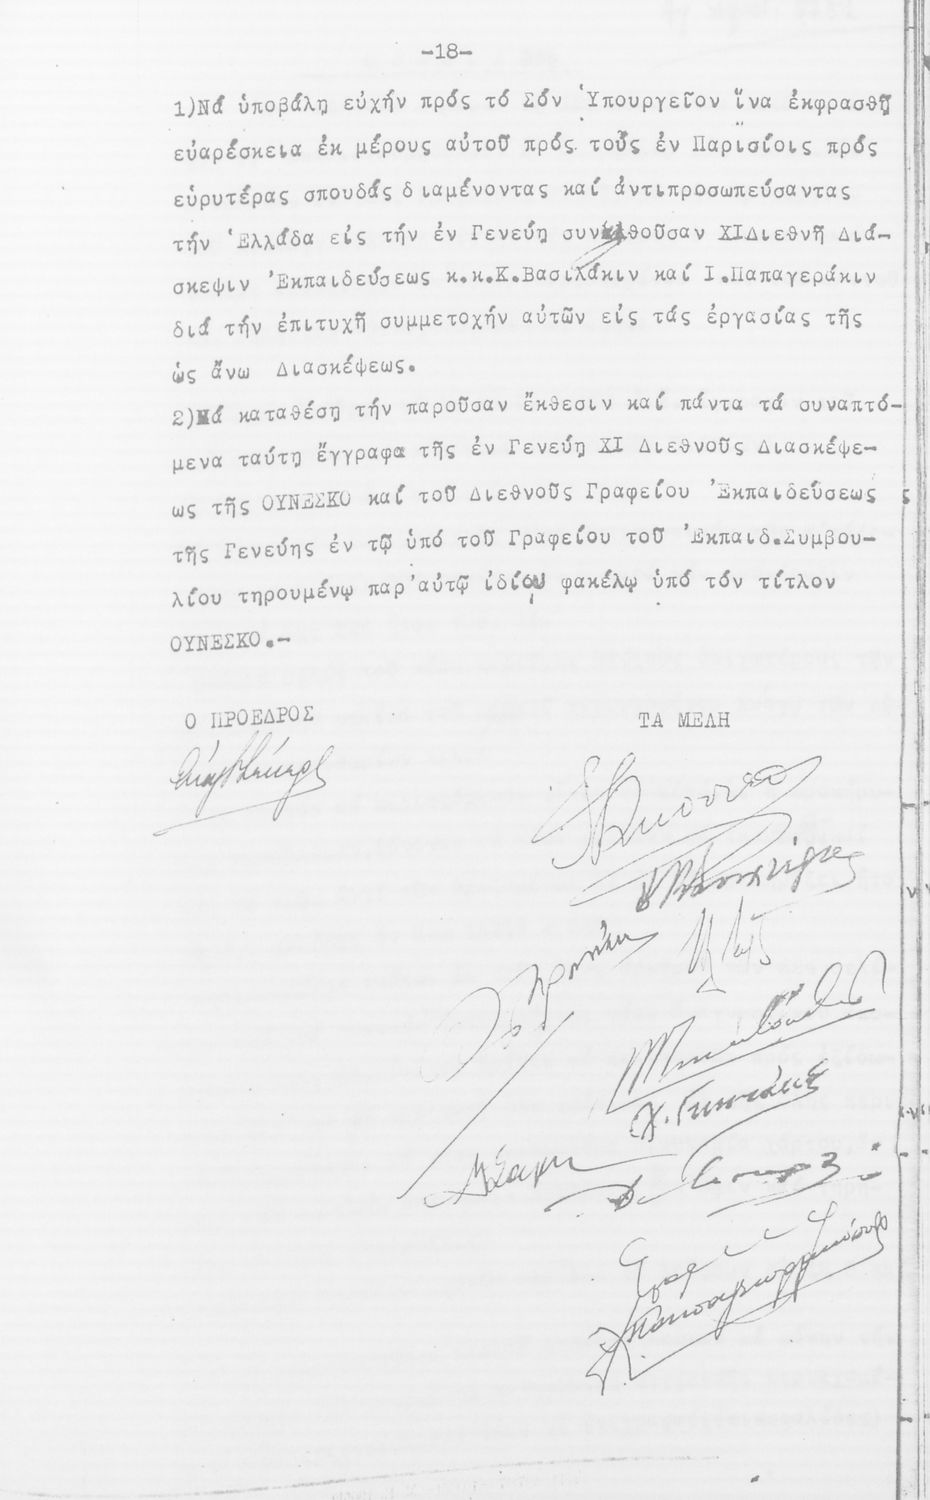 -18-
1)Νά ὑποβάλῃ εὐχήν πρός τό Σόν Ὑπουργεῖον ἵνα ἐκφρασθῇ
εὐαρέσκεια ἐκ μέρους αὐτοῦ πρός τοὖς ἐν Παρισίοις πρός
εὑρυτέρας σπουδάς διαμένοντας καί ἀντιπροσωπεύσαντας
τήν Ἑλλάδα εἰς τήν ἐν Γενεύῃ συνελθοῦσαν XIΔιεθνῆ Διά-
σκεψιν Ἐκπαιδεύσεως κ.κ.Κ.Βασιλάκιν καί Ι.Παπαγεράκιν
διά τήν ἐπιτυχῆ συμμετοχήν αὐτῶν εἰς τάς ἐργασίας τῆς
ὡς ἄνω Διασκέψεως.
2)Νά καταθέσῃ τήν παροῦσαν ἔκθεσιν καί πάντα τά συναπτό-
μενα ταύτῃ ἔγγραφα τῆς ἐν Γενεύῃ XI Διεθνοῦς Διασκέψε-
ως τῆς ΟΥΝΕΣΚΟ καί τοῦ Διεθνοῦς Γραφείου Ἐκπαιδεύσεως
τῆς Γενεύης ἐν τῷ ὑπό τοῦ Γραφείου τοῦ Ἐκπαιδ.Συμβου-
λίου τηρουμένῳ παρ'αὐτῷ ἰδίου φακέλῳ ὑπό τόν τίτλον
ΟΥΝΕΣΚΟ.-
Ο ΠΡΟΕΔΡΟΣ
ΤΑ ΜΕΛΗ